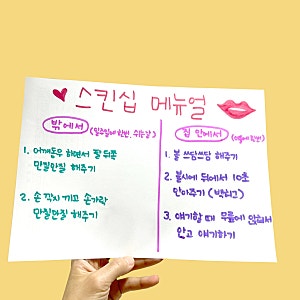 스킨십 메뉴얼
밖에서 (일주일에 한번, 쉬는날)
1. 어깨동무 하면서 팔 뒤쪽
만질만질 해주기
2. 손 깍지 끼고 손가락
만질만질 해주기
집 안에서 (한번)
1. 볼 쓰담쓰담 해주기
2. 불시에 뒤에서 10초
안아주기 (백허그)
3. 얘기할 때 무릎에 앉혀서
안고 얘기하기